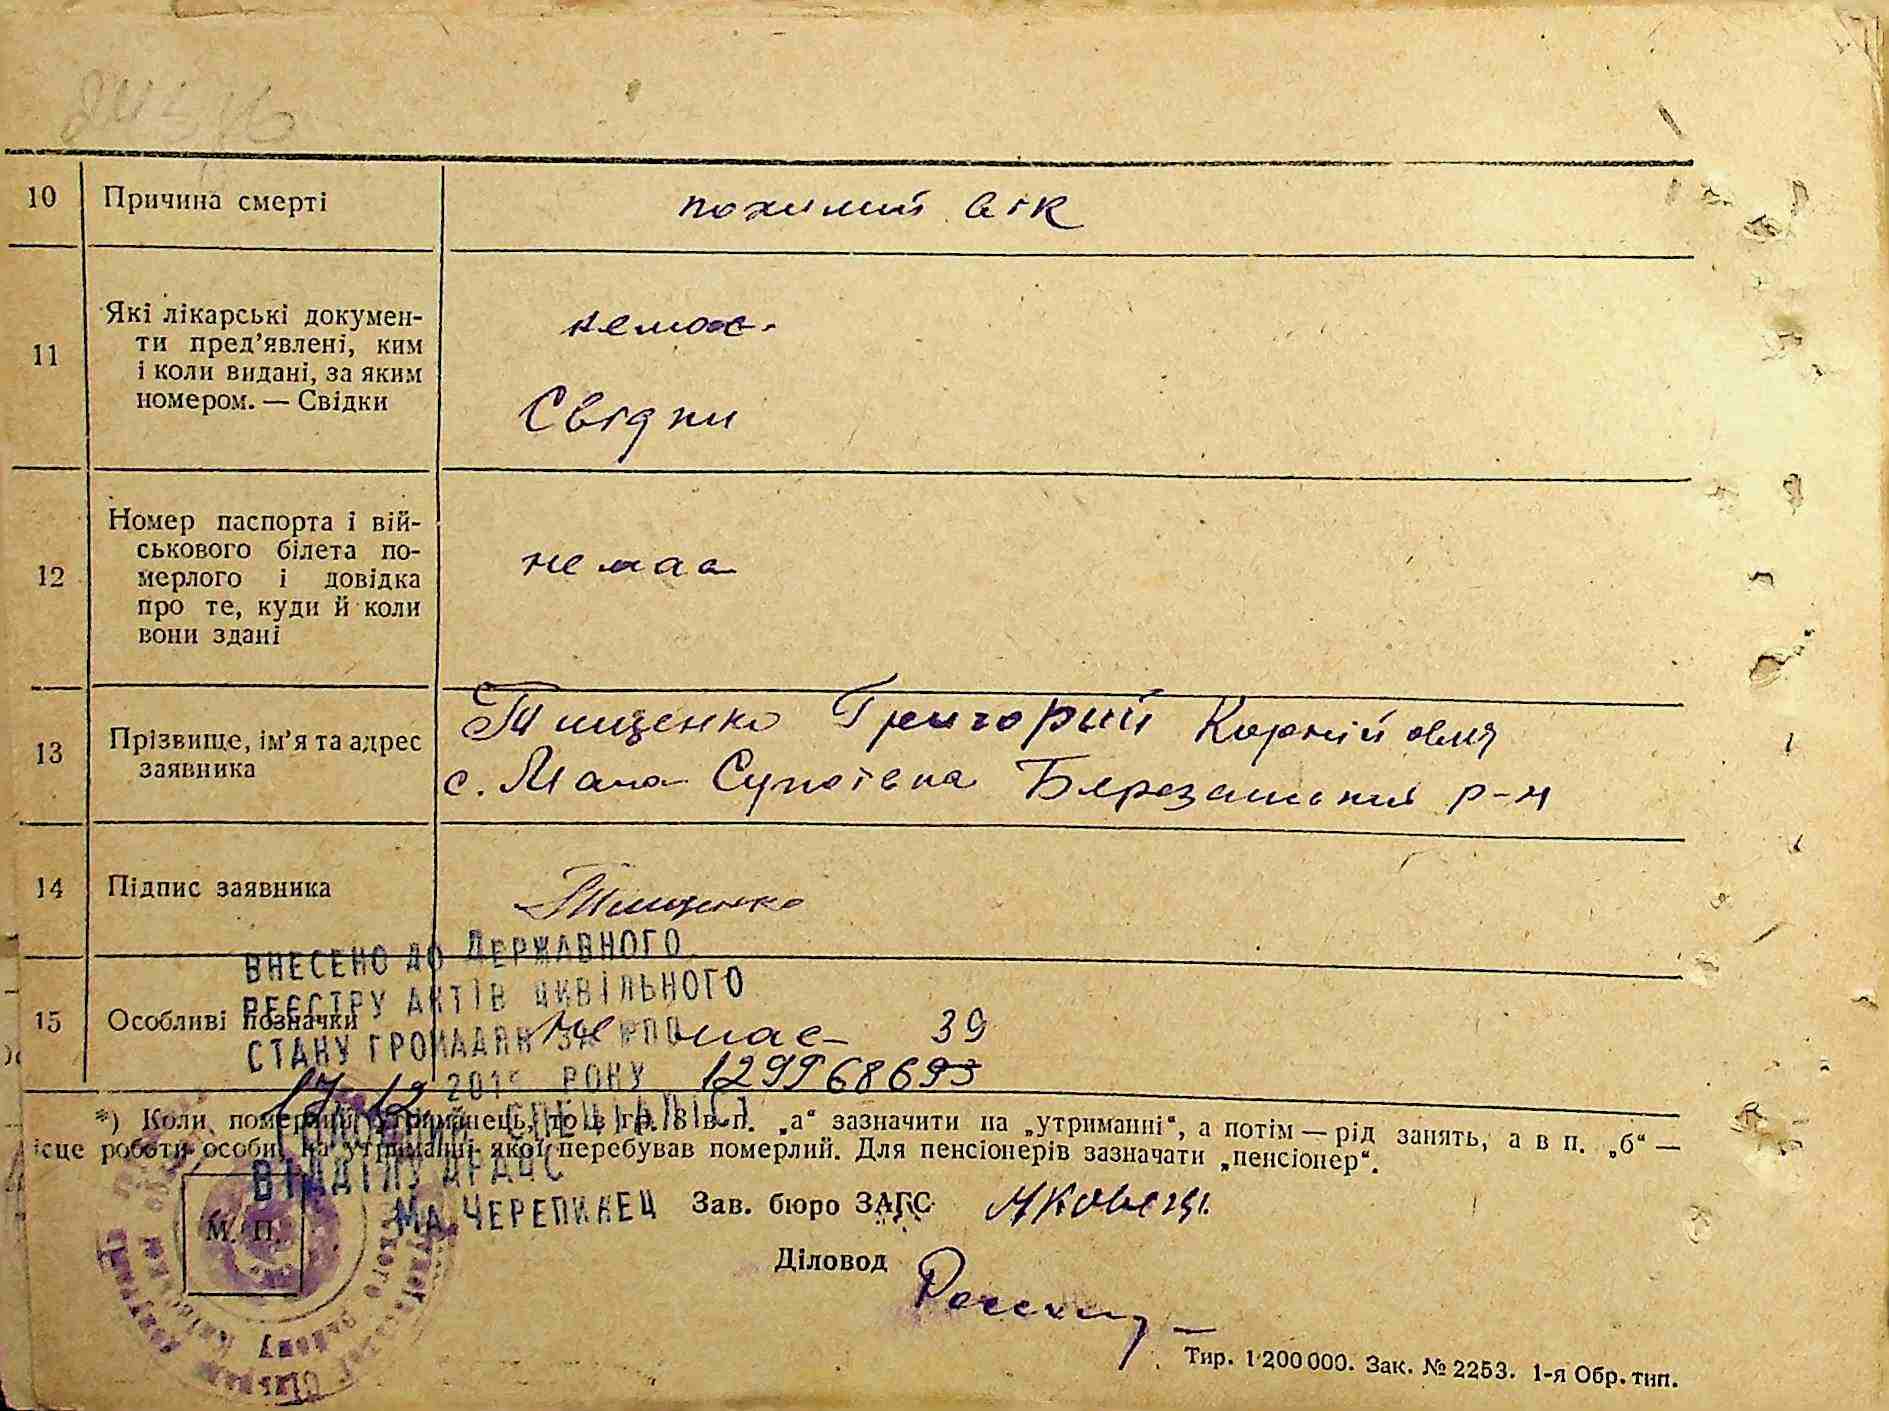 10 Причина смерті похилий вік
11 Які лікарські докумен-
ти пред'явлені, ким
і коли видані, за яким
номером. — Свідки
немає
Свідки
12 Номер паспорта і вій-
ськового білета по-
мерлого і довідка
про те, куди й коли
вони здані
немає
13 Прізвище, ім'я та адрес
заявника
Тищенко Григорий Корнійович
с. Мала Супоївка Березанський р-н
14 Підпис заявника Тищенко
ВНЕСЕНО ДО ДЕРЖАВНОГО
РЕЄСТРУ АКТІВ ЦИВІЛЬНОГО
15 Особливі позначки не має 39
СТАНУ ГРОМАДЯН ЗА
17 12 201 РОКУ 12996869
*) Коли померлий утриманець, то в гр. 8 в п. „а“ зазначити на „утриманні“, а потім — рід занять, а в п. „б“ —
ісце роботи особи, на утриманні якої перебував померлий. Для пенсіонерів зазначати „пенсіонер“.
СПЕЦІАЛІСТ
ВІДДІЛУ ДРАЦС
М.А. ЧЕРЕПИНЕЦ
М. П.
Зав. бюро ЗАГС
Діловод
Тир. 1 200 000. Зак. № 2253. 1-я Обр. тип.